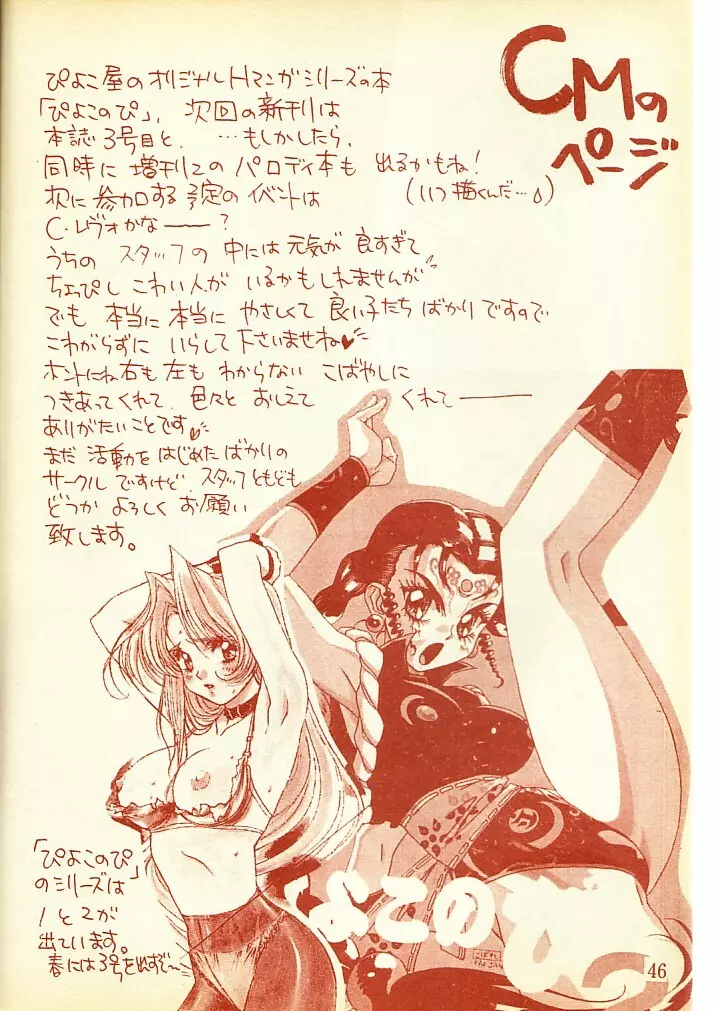 CMの
ページ
ぴよこ屋のオリジナルHマンガシリーズの本
「ぴよこのぴ」、次回の新刊は
本誌3号目と、…もしかしたら、
同時に増刊2のパロディ本も出るかもね!
(いつ描くんだ…)
次に参加する予定のイベントは
C・レヴォかな――?
うちのスタッフの中には元気が良すぎて
ちょっぴしこわい人がいるかもしれませんが
でも本当に本当にやさしくて良い子たちばかりですので
こわがらずにいらして下さいませね♥
ホントにね右も左もわからないこばやしに
つきあってくれて、色々とおしえてくれて――
ありがたいことです♥
まだ活動をはじめたばかりの
サークルですけど、スタッフともども
どうかよろしくお願い
致します。
「ぴよこのぴ」
のシリーズは
1と2が
出ています。
春には3号を出すぞ〜
ぴよこのぴ
46